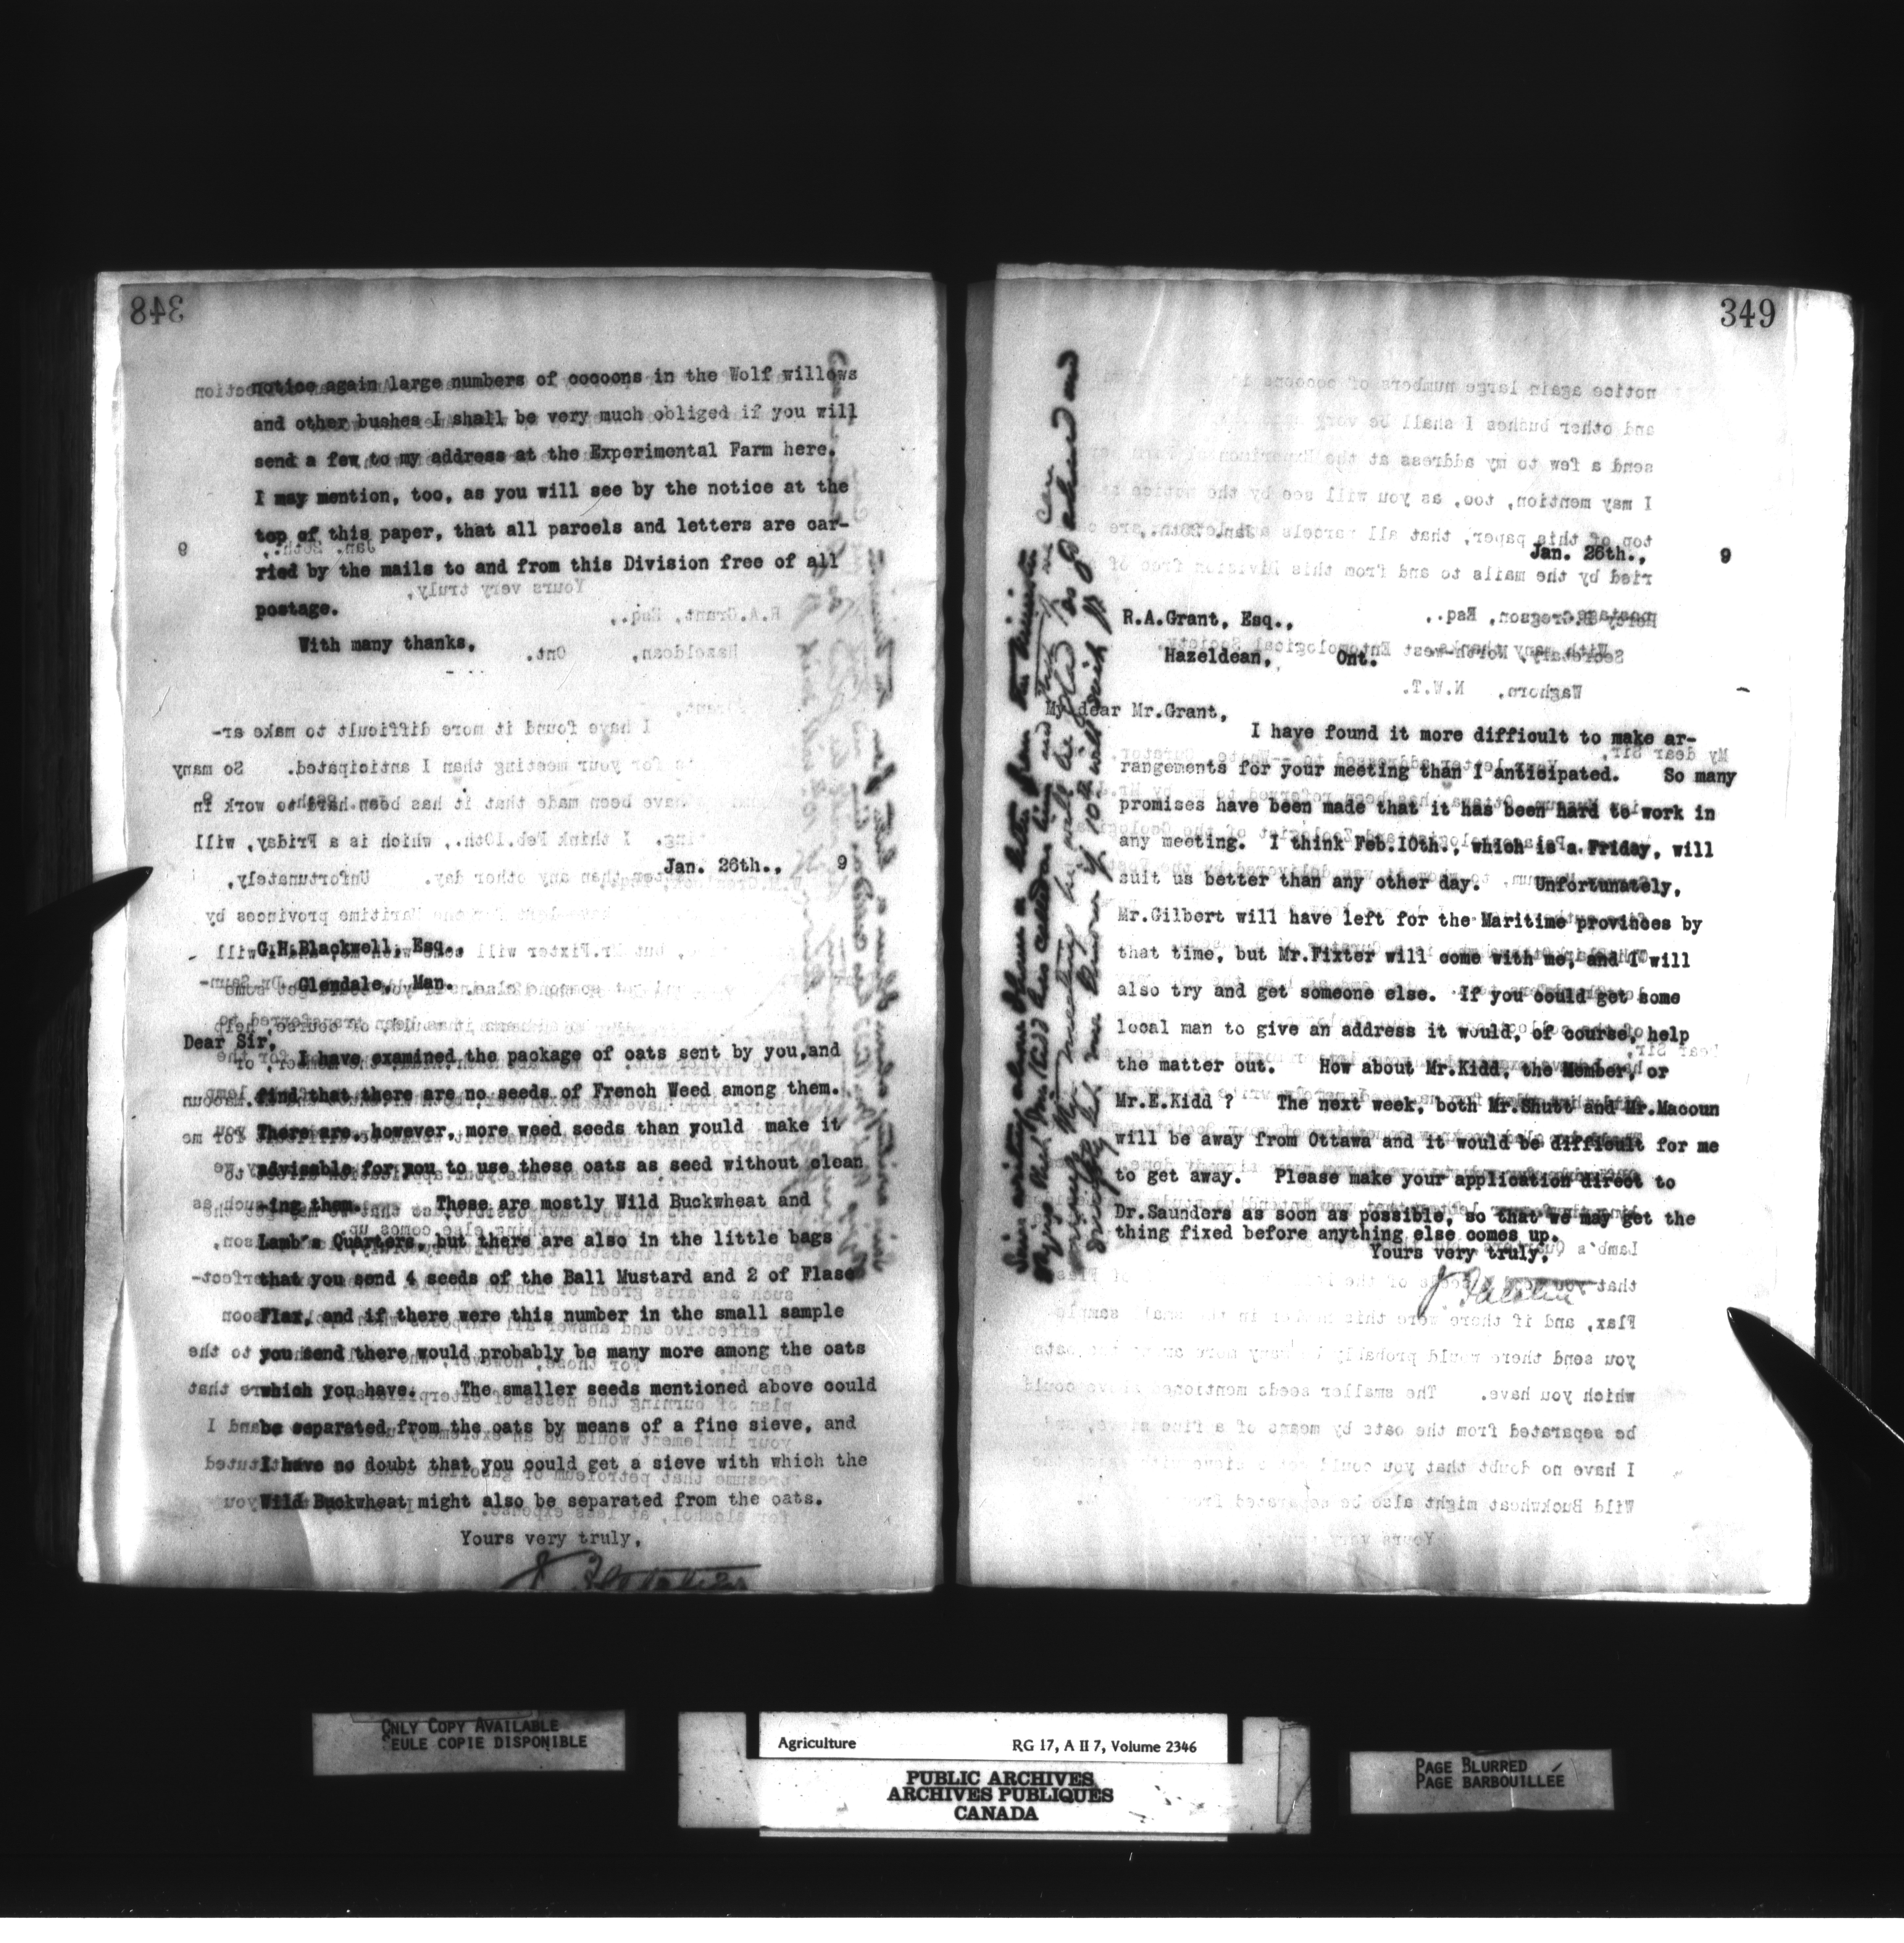 348
notice again large numbers of cocoons in the Wolf willows
and other bushes I shall be very much obliged if you will
send a few to my address at the Experimental Farm here.
I may mention, too, as you will see by the notice at the
top of this paper, that all parcels and letters are car-
ried by the mails to and from this Division free of all
postage.
With many thanks,
Jan. 26th., 9
G.H.Blackwell, Esq.,
Glendale, Man.
Dear Sir,
I have examined the package of oats sent by you,and
find that there are no seeds of French Weed among them.
There are, however, more weed seeds than would make it
advisable for you to use these oats as seed without clean
-ing them. These are mostly Wild Buckwheat and
Lamb's Quarters, but there are also in the little bags
that you send 4 seeds of the Ball Mustard and 2 of Flase
Flax, and if there were this number in the small sample
you send there would probably be many more among the oats
which you have. The smaller seeds mentioned above could
be separated from the oats by means of a fine sieve, and
I have no doubt that you could get a sieve with which the
Wild Buckwheat might also be separated from the oats.
Yours very truly,
349
Jan. 26th., 9
R.A.Grant, Esq.,
Hazeldean, Ont.
My dear Mr.Grant,
I have found it more difficult to make ar-
rangements for your meeting than I anticipated. So many
promises have been made that it has been hard to work in
any meeting. I think Feb.10th., which is a Friday, will
suit us better than any other day. Unfortunately,
Mr.Gilbert will have left for the Maritime provinces by
that time, but Mr.Fixter will come with me, and I will
also try and get someone else. If you could get some
local man to give an address it would, of course, help
the matter out. How about Mr.Kidd, the Member, or
Mr.E.Kidd ? The next week, both Mr.Shutt and Mr.Macoun
will be away from Ottawa and it would be difficult for me
to get away. Please make your application direct to
Dr.Saunders as soon as possible, so that we may get the
thing fixed before anything else comes up.
Yours very truly,
J. Fletcher
Since writing above I have a letter from the Minister
saying that Mr. Kidd has asked him and
meeting he will be glad to go ahead and
let me know if 10th will suit you
ONLY COPY AVAILABLE
SEULE COPIE DISPONIBLE
Agriculture RG 17, A II 7, Volume 2346
PUBLIC ARCHIVES
ARCHIVES PUBLIQUES
CANADA
PAGE BLURRED
PAGE BARBOUILLÉE